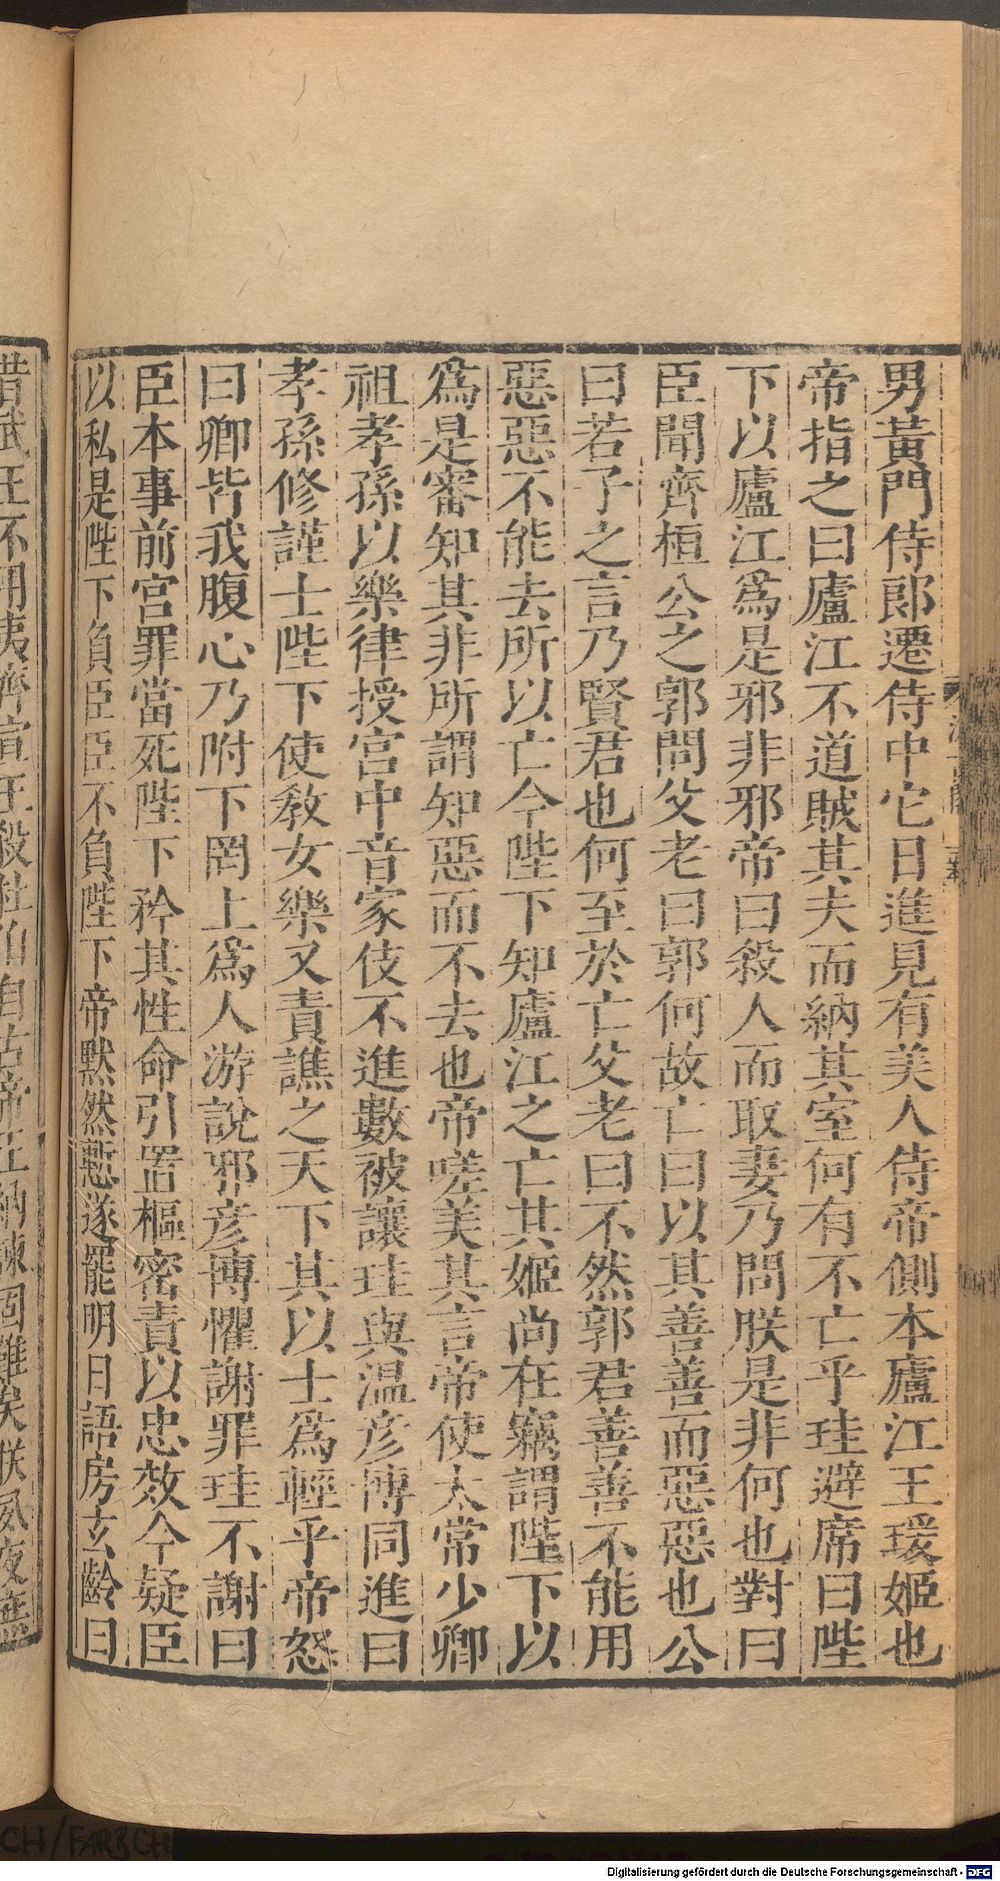 男黃門侍郞遷侍中它日進見有美人侍帝側本廬江王瑗姬也
帝指之曰廬江不道賊其夫而納其室何有不亡乎珪避席曰陛
下以廬江爲是邪非邪帝曰殺人而取妻乃問朕是非何也對曰
臣聞齊桓公之郭問父老曰郭何故亡曰以其善善而惡惡也公
曰若子之言乃賢君也何至於亡父老曰不然郭君善善不能用
惡惡不能去所以亡今陛下知廬江之亡其姬尚在竊謂陛下以
爲是審知其非所謂知惡而不去也帝嗟美其言帝使太常少卿
祖孝孫以樂律授宮中音家伎不進數被讓珪與温彥博同進曰
孝孫修謹士陛下使教女樂又責譙之天下其以士爲輕乎帝怒
曰卿皆我腹心乃附下罔上爲人游說邪彥博懼謝罪珪不謝曰
臣本事前宮罪當死陛下矜其性命引置樞密責以忠效今疑臣
以私是陛下負臣臣不負陛下帝默然慙遂罷明日語房玄齡曰
昔武王不用夷齊宣王殺杜伯自古帝王納諫固難矣朕夙夜
Digitalisierung gefördert durch die Deutsche Forschungsgemeinschaft - DFG